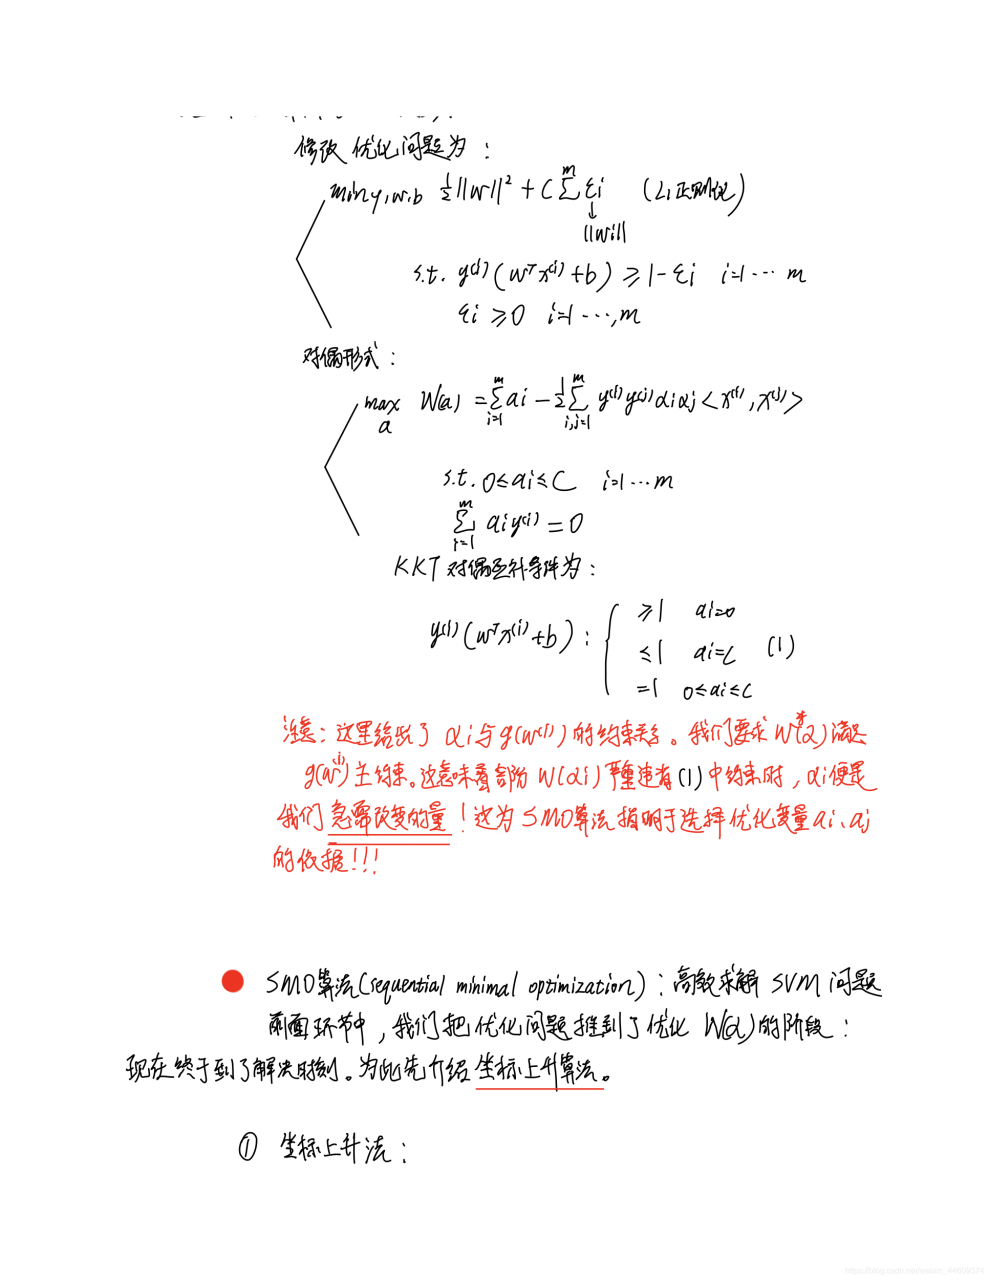 修改 优化问题为：
min γ,w,b ½||w||² + C Σ^m εi (L₁正则化)
↓
||wi||
s.t. y⁽ⁱ⁾(wᵀx⁽ⁱ⁾+b) ≥ 1-εi i=1 ··· m
εi ≥0 i=1 ···,m
对偶形式：
max_a W(a) = Σ_{i=1}^m ai - ½ Σ_{i,j=1}^m y⁽ⁱ⁾y⁽ʲ⁾αiαj<x⁽ⁱ⁾,x⁽ʲ⁾>
s.t. 0≤ai≤C i=1 ··· m
Σ_{i=1}^m aiy⁽ⁱ⁾=0
KKT 对偶互补条件为：
y⁽ⁱ⁾(wᵀx⁽ⁱ⁾+b)： {
≥1 ai=0
≤1 ai=C (1)
=1 0≤ai≤C
注意：这里给出了 αi与g(w⁽ⁱ⁾)的约束关系。我们要求 W*(α)满足
g(w⁽ⁱ⁾) 约束。这意味着部份 W(αi)严重违背(1)中约束时，αi便是
我们急需改变的量！这为SMO算法指明于选择优化变量ai、aj
的依据！！！
SMO算法(sequential minimal optimization)：高效求解 SVM 问题
前面环节中，我们把优化问题推到了优化 W(α)的阶段：
现在终于到了解决时刻。为此先介绍坐标上升算法。
① 坐标上升法：